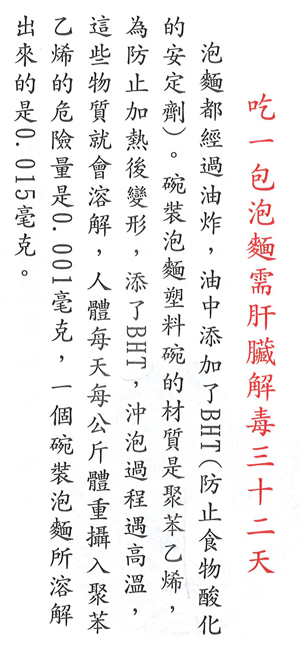 吃一包泡麵需肝臟解毒三十二天
泡麵都經過油炸，油中添加了BHT(防止食物酸化
的安定劑)。碗裝泡麵塑料碗的材質是聚苯乙烯，
為防止加熱後變形，添了BHT，沖泡過程遇高溫，
這些物質就會溶解，人體每天每公斤體重攝入聚苯
乙烯的危險量是0.001毫克，一個碗裝泡麵所溶解
出來的是0.015毫克。